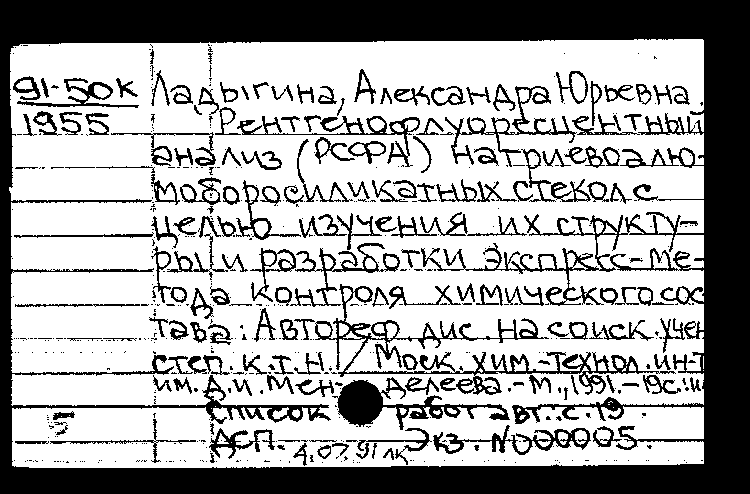 91-50к Ладыгина, Александра Юрьевна.
1955 Рентгенофлуоресцентный
анализ (РСФА) натриевоалю-
моборосиликатных стекол с
целью изучения их структу-
ры и разработки экспресс-ме-
тода контроля химического сос
тава: Автореф. дис. на соиск. учен
степ. к.т.н. / Моск. хим.-технол. ин-т
им. Д.И. Менделеева.-М., 1991.-19с.:и
Список работ авт.: с. 19.
5 ДСП. Экз. N000005.
4.07.91 лк